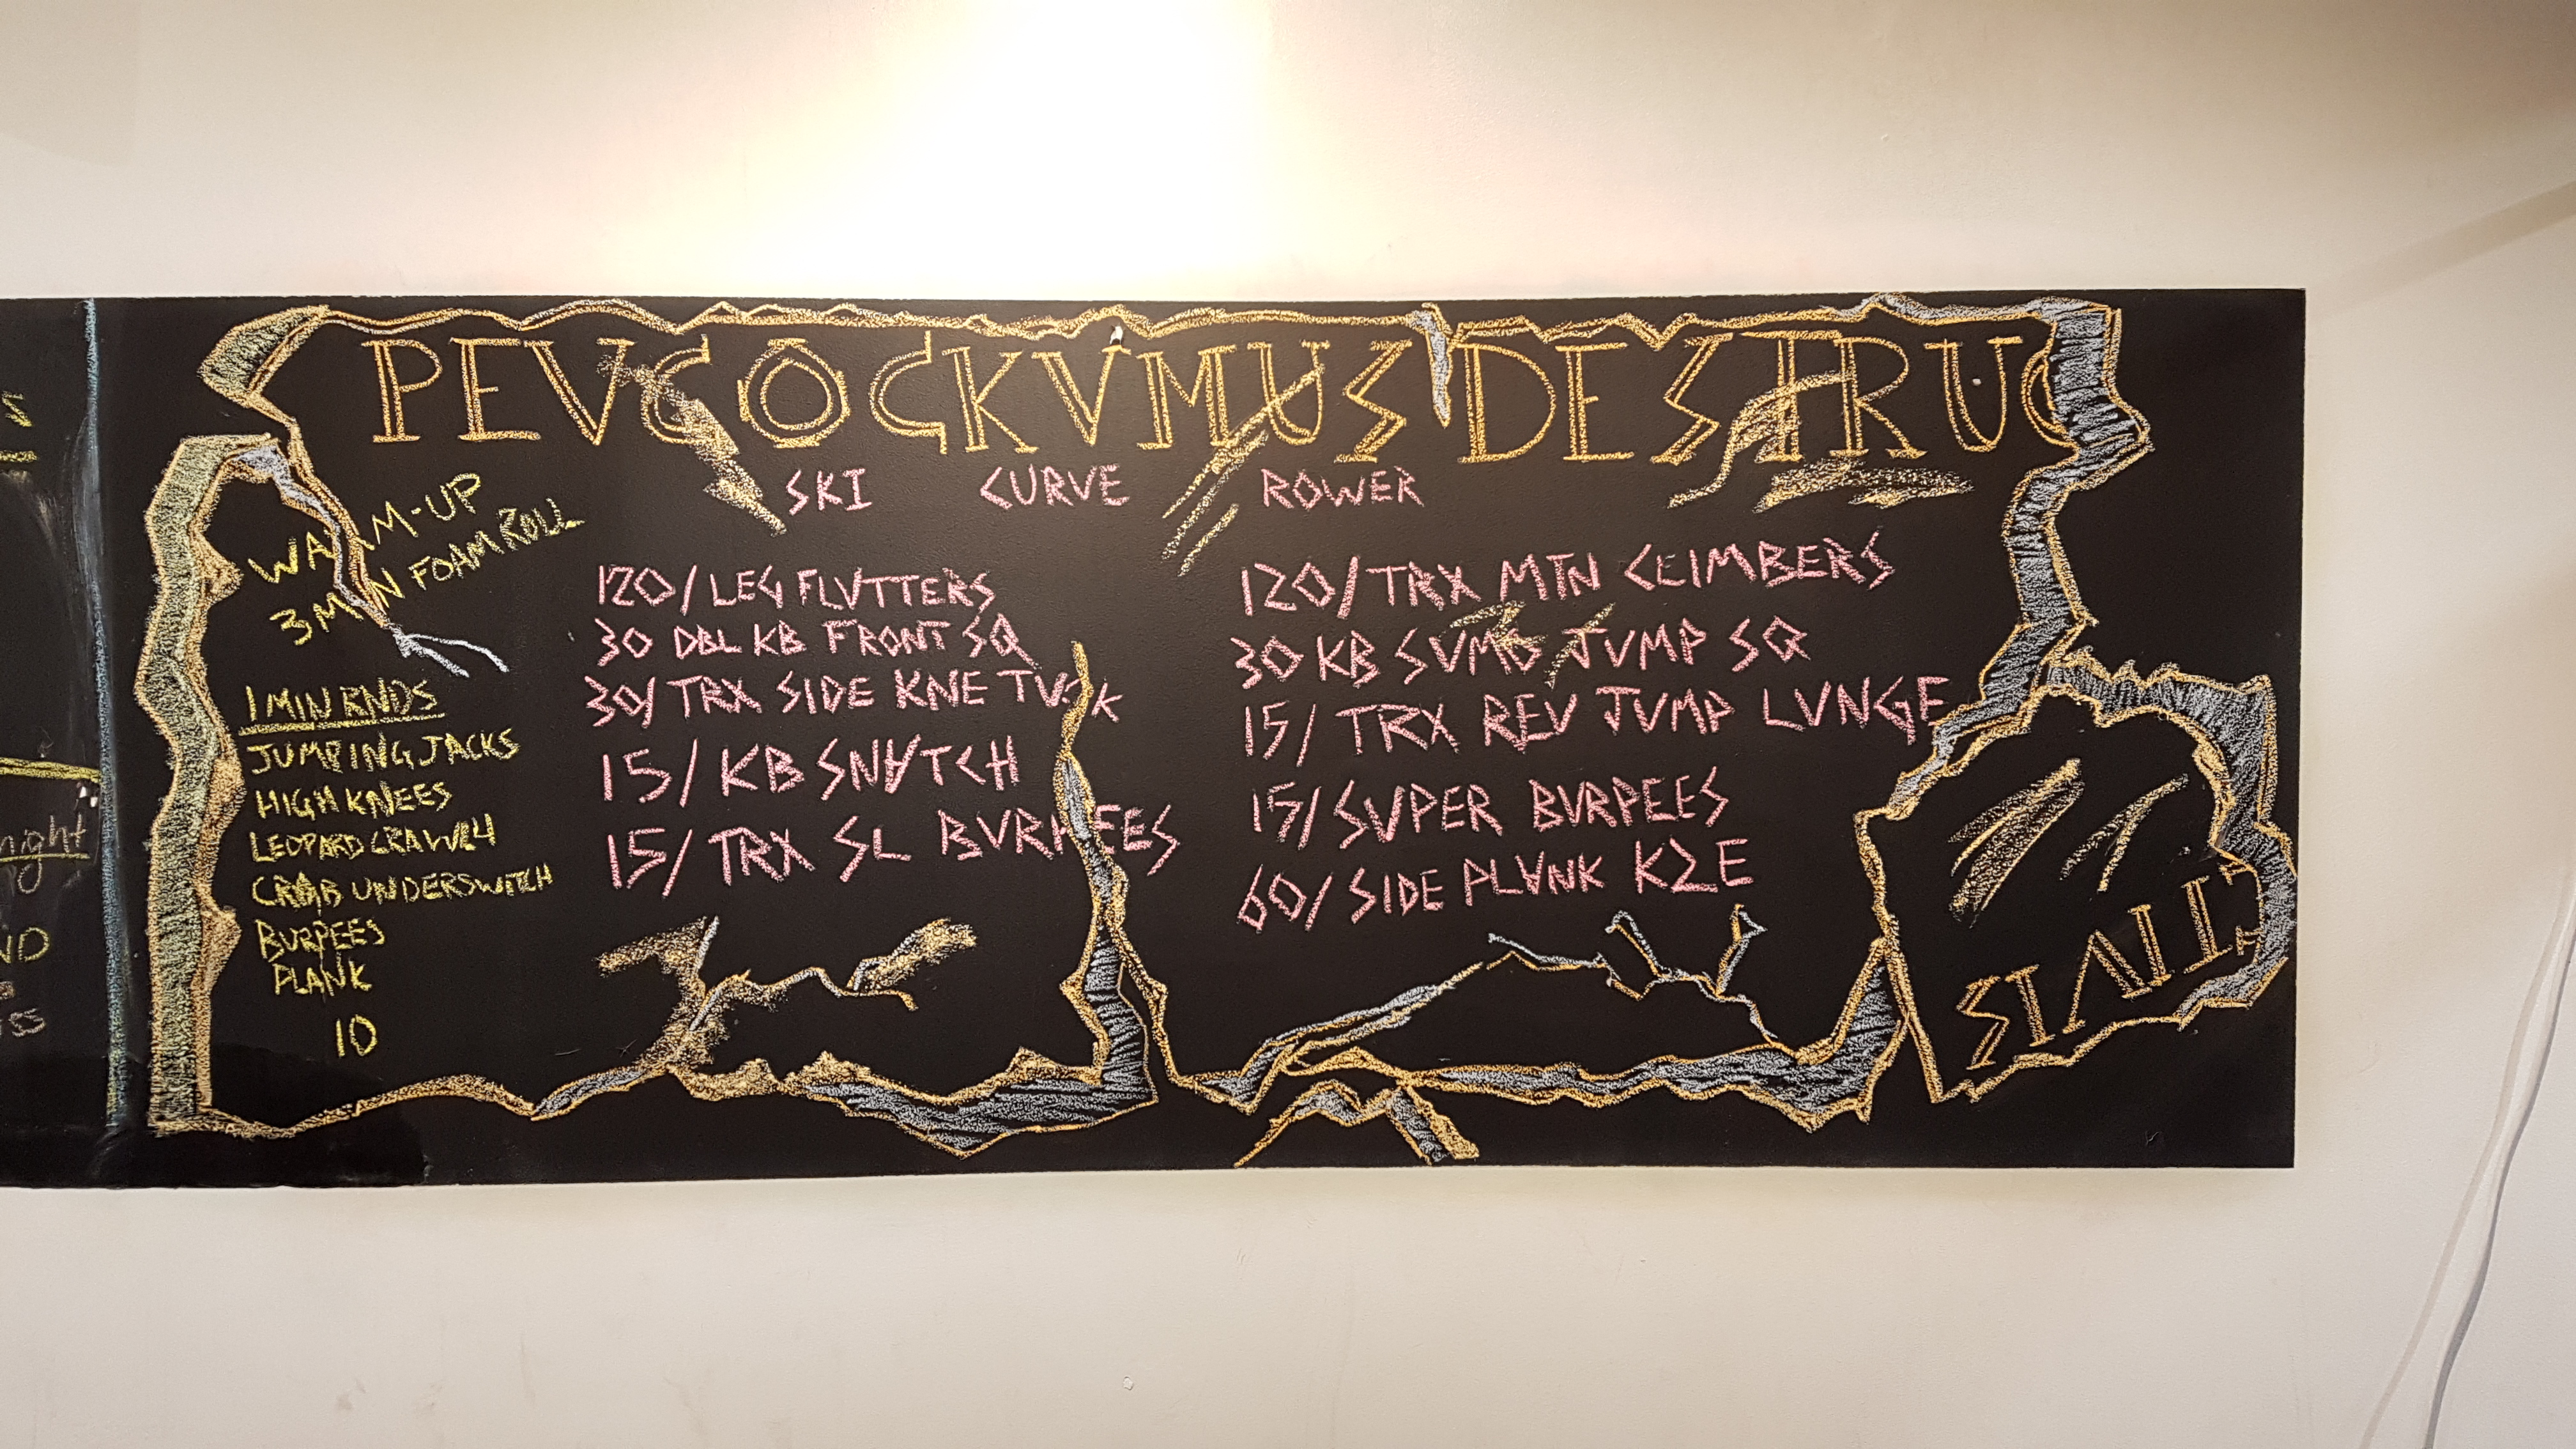 PEVCOCKVMUS DESTRUC
TIVIS
SKI CURVE ROWER
WARM-UP
3 MIN FOAM ROLL
1 MIN RNDS
JUMPING JACKS
HIGH KNEES
LEOPARD CRAWL
CRAB UNDERSWITCH
BURPEES
PLANK
10
120/LEG FLVTTERS
30 DBL KB FRONT SQ
30/ TRX SIDE KNE TUCK
15/ KB SNATCH
15/ TRX SL BVRPEES
120/TRX MTN CLIMBERS
30 KB SVMO JVMP SQ
15/ TRX REV JVMP LVNGE
15/SVPER BVRPEES
60/ SIDE PLANK K2E
night
ND